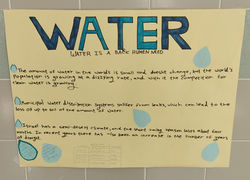 WATER
WATER IS A BASIC HUMAN NEED
The amount of water in the world is small and doesnt change, but the world's
population is growing at a dizzying rate, and with it the competition for
clean water is growing.
Municipal water distribution systems suffer from leaks, which can lead to the
loss of up to of the amount of water.
Israel has a semi-desert climate, and the short rainy season lasts about four
months. In recent years there has been an increase in the number of years
of drought.